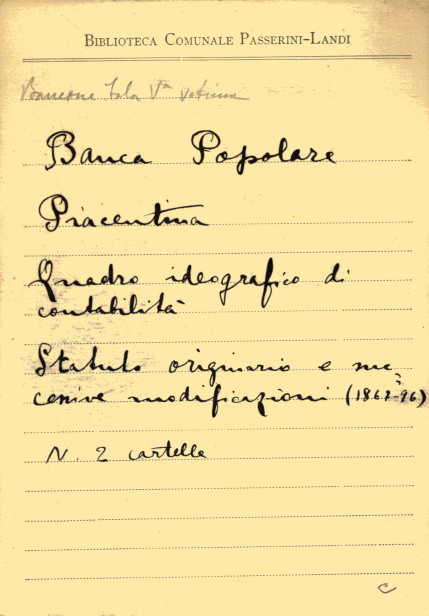 BIBLIOTECA COMUNALE PASSERINI-LANDI
Bancone
Banca Popolare
Piacentina
Quadro ideografico di
contabilità
Statuto originario e suc
cessive modificazioni (1867-96)
?
N. 2 cartelle
C